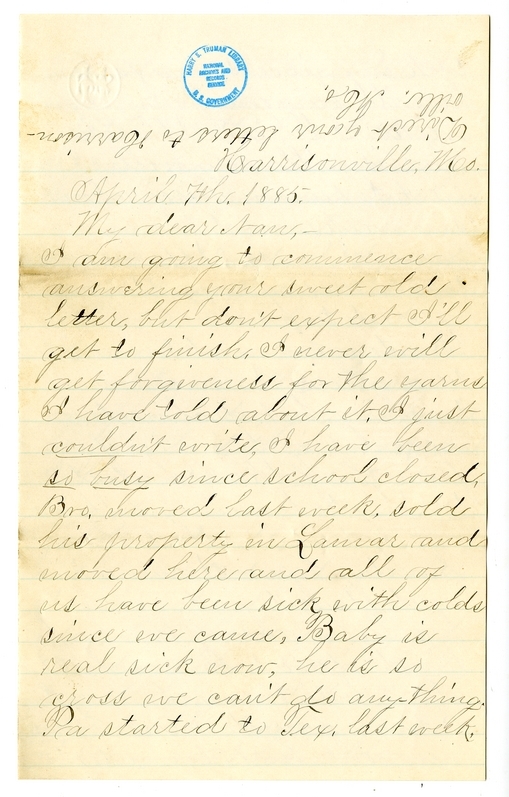 HARRY S. TRUMAN LIBRARY
NATIONAL
ARCHIVES AND
RECORDS
SERVICE
U. S. GOVERNMENT
Direct your letters to Harrison-
ville. Mo.
Harrisonville, Mo.
April 7th. 1885.
My dear Nan,-
I am going to commence
answering your sweet old
letter, but don't expect I'll
get to finish, I never will
get forgiveness for the yarns
I have told about it. I just
couldn't write, I have been
so busy since school closed,
Bro. moved last week. sold
his property in Lamar and
moved here and all of
us have been sick with colds
since we came, Baby is
real sick now, he is so
cross we can't do any-thing.
Pa started to Tex. last week.